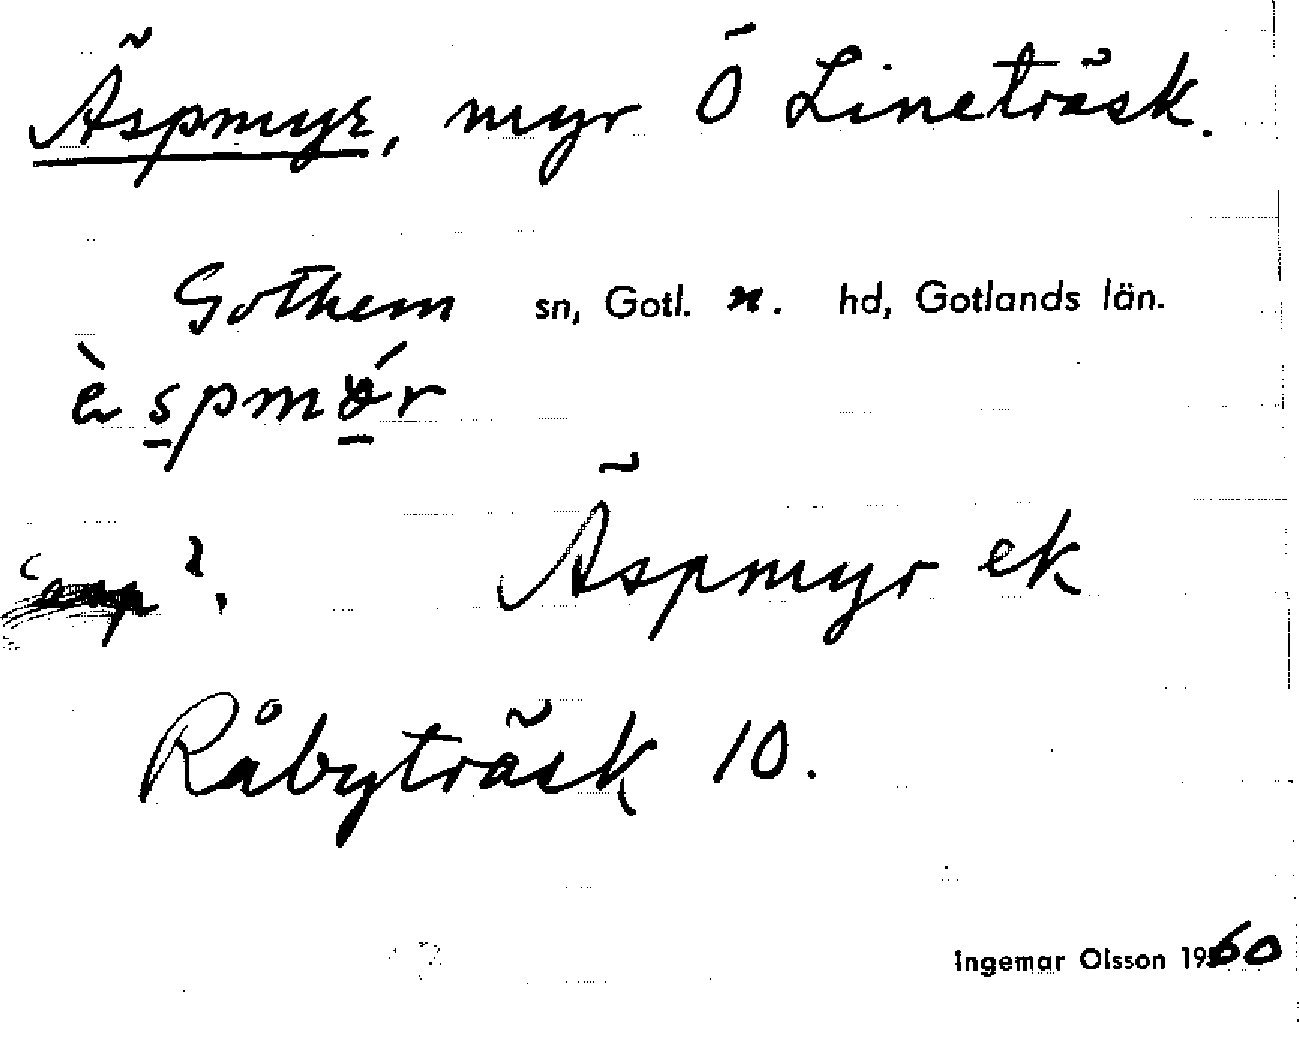 Äspmyr, myr Ö Lineträsk.
Gothem sn, Gotl. n. hd, Gotlands län.
èspmǿr
?
Äspmyr ek
Råbyträsk 10.
Ingemar Olsson 1960